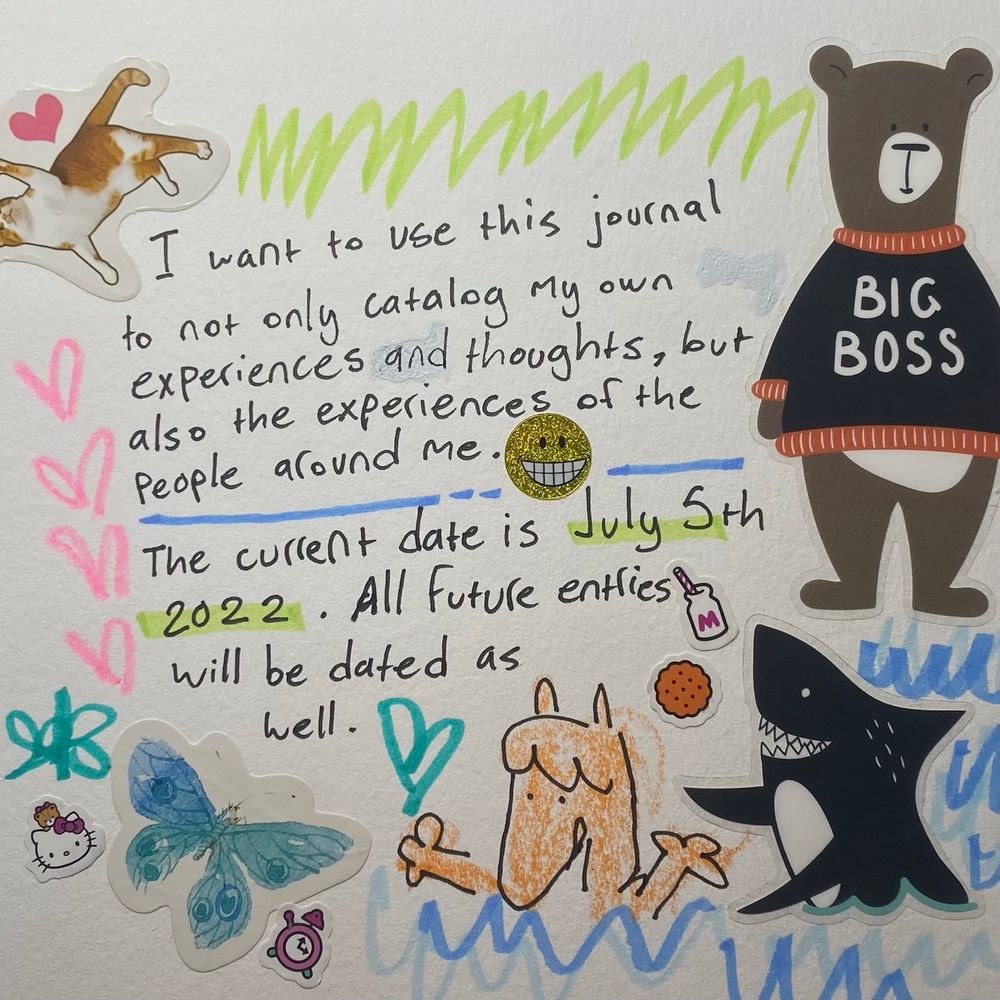 I want to use this journal
to not only catalog my own
experiences and thoughts, but
also the experiences of the
people around me.
The current date is July 5th
2022. All future entries
will be dated as
well.
BIG
BOSS
M